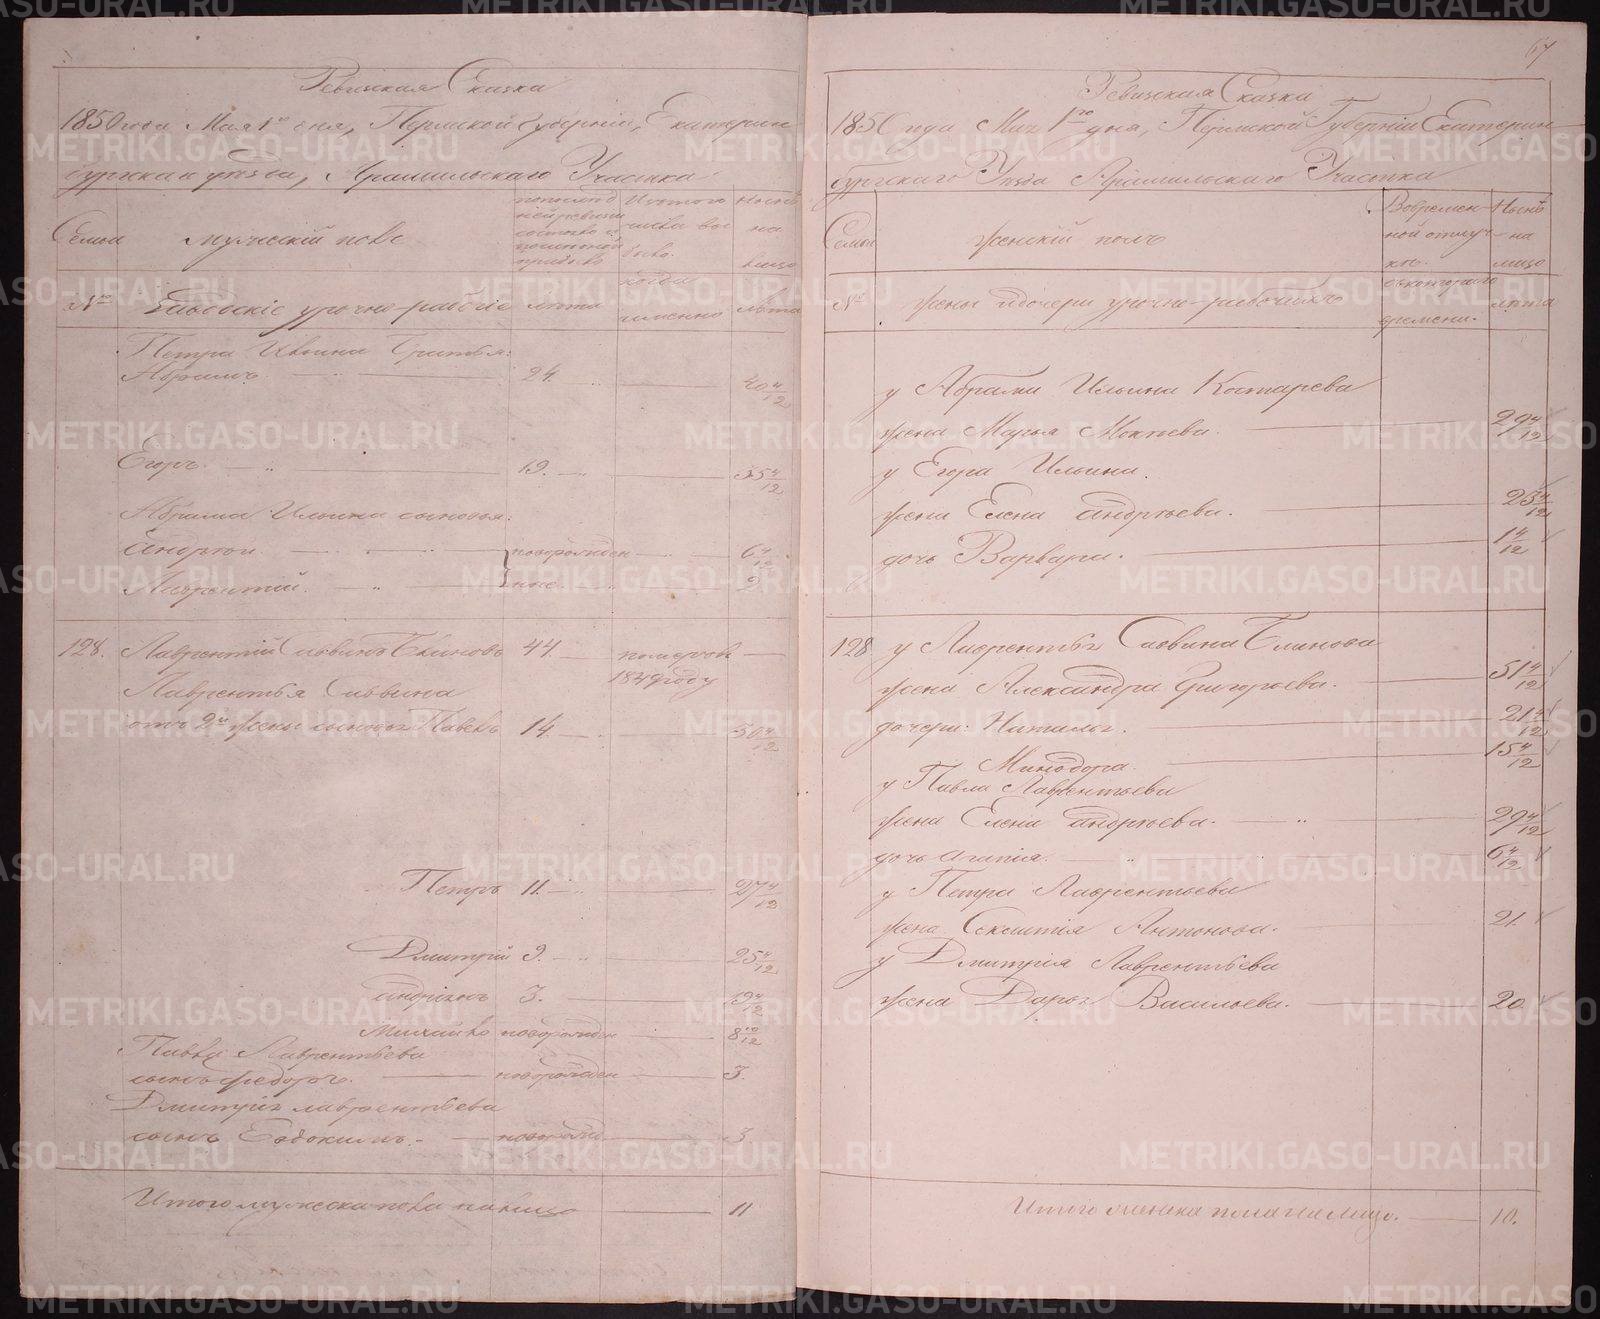 67
Ревизская Сказка
1850 года Мая 1го дня, Пермской Губернiи, Екатерин
бургскаго уѣзда, Арамильскаго Участка
Семьи
мужескiй полъ
по последней ревизiи состояло и после оной прибыло
Изъ того числа выбыло
Нынѣ на лицо
№
Заводскiе урочно-рабочiе
лѣта
когда именно
лѣта
Петра Ильина братья:
Абрамъ 24. 40 4/12
Егоръ 19. 35 4/12
Абрама Ильина сыновья:
Андрей новорожден 6 4/12
Лаврентiй ные 2
128. Лаврентiй Саввинъ Блиновъ 44. померъ въ
1849 году
Лаврентья Саввина
отъ 2й жены сыновья Павелъ 14. 30 4/12
Петръ 11. 27 4/12
Дмитрiй 9. 25 4/12
Андрiянъ 3. 19 4/12
Михайло новорожден 8 10/12
Павла Лаврентьева
сынъ Федоръ. новорожден 3.
Дмитрiя Лаврентьева
сынъ Евдокимъ. новорожд 3
Итого мужеска пола на лицо 11
Ревизская Сказка
1850 года Мая 1го дня, Пермской Губернiи Екатерин-
бургскаго Уѣзда Арамильскаго Участка
Семьи
женскiй полъ
Во времен-
ной отлуч-
кѣ.
Нынѣ
на
лицо
№
жены и дочери урочно-рабочихъ
съ котораго
времени.
лѣта
у Абрама Ильина Костарева
жена Марья Мокѣева. 29 4/12
у Егора Ильина.
жена Елена Андрѣева. 23 4/12
дочь Варвара. 1 4/12
128 у Лаврентья Саввина Блинова
жена Александра Григорьева. 51 4/12
дочери: Наталья. 21 4/12
Минодора. 15 4/12
у Павла Лаврентьева
жена Елена Андрѣева. 29 4/12
дочь Агапiя. 6 4/12
у Петра Лаврентьева
жена Антонова. 21.
у Дмитрiя Лаврентьева
жена Дарья Васильева. 20
Итого женска пола на лицо. 10.
METRIKI.GASO-URAL.RU